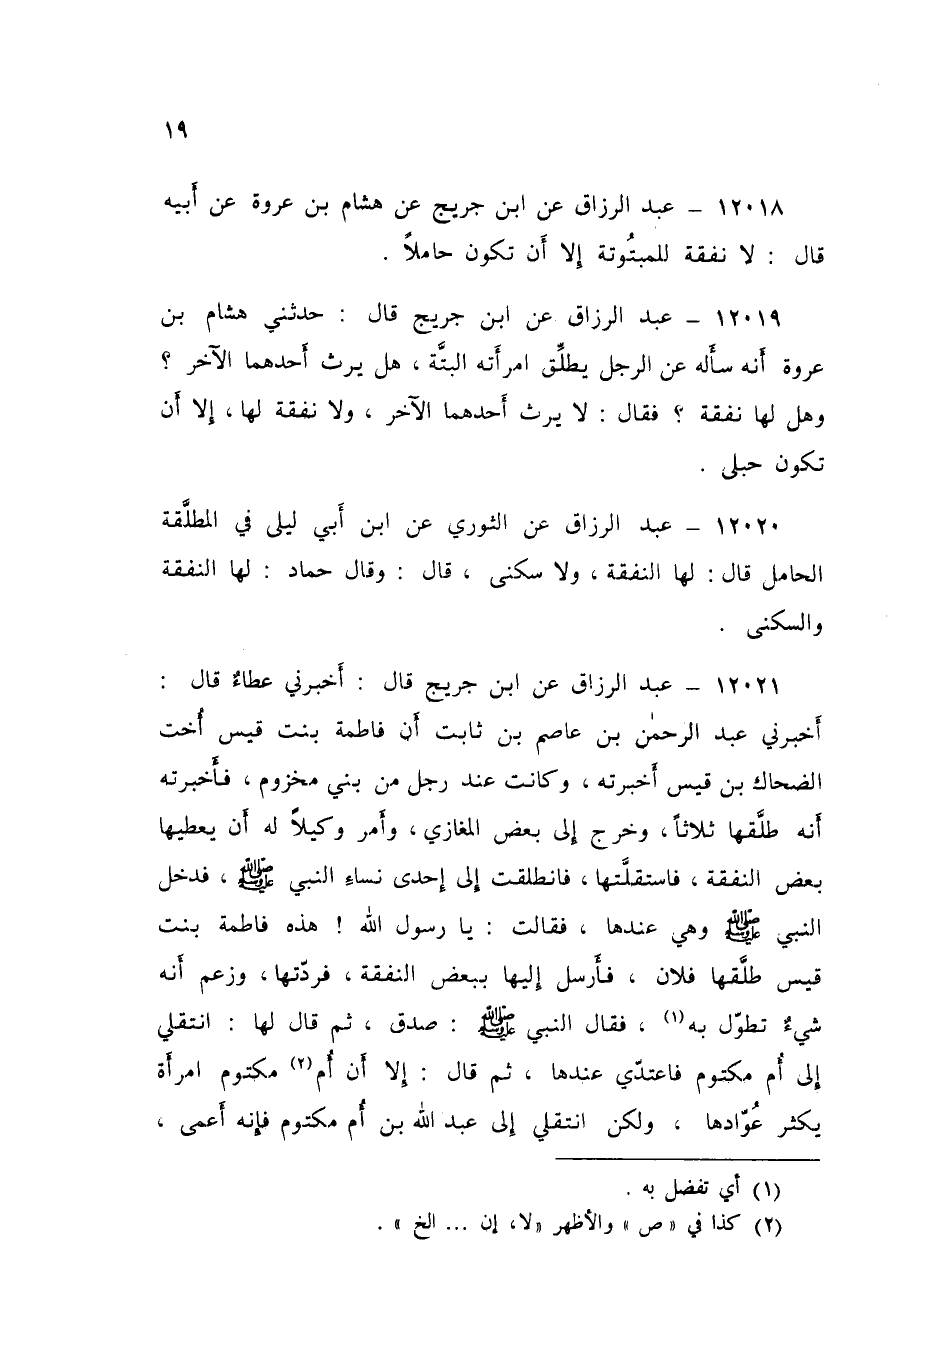 ١٩
١٢٠١٨ – عبد الرزاق عن ابن جريج عن هشام بن عروة عن أَبيه
قال : لا نفقة للمبتُوتة إلا أَن تكون حاملاً .
١٢٠١٩ – عبد الرزاق عن ابن جريج قال : حدثني هشام بن
عروة أَنه سأَله عن الرجل يطلِّق امرأَته البتَّة ، هل يرث أَحدهما الآخر ؟
وهل لها نفقة ؟ فقال : لا يرث أَحدهما الآخر ، ولا نفقة لها ، إلا أَن
تكون حبلى .
١٢٠٢٠ – عبد الرزاق عن الثوري عن ابن أَبي ليلى في المطلَّقة
الحامل قال : لها النفقة ، ولا سكنى ، قال : وقال حماد : لها النفقة
والسكنى .
١٢٠٢١ – عبد الرزاق عن ابن جريج قال : أَخبرني عطاءٌ قال :
أَخبرني عبد الرحمٰن بن عاصم بن ثابت أَن فاطمة بنت قيس أُخت
الضحاك بن قيس أَخبرته ، وكانت عند رجل من بني مخزوم ، فأَخبرته
أَنه طلَّقها ثلاثاً ، وخرج إلى بعض المغازي ، وأَمر وكيلاً له أَن يعطيها
بعض النفقة ، فاستقلَّتها ، فانطلقت إلى إحدى نساءِ النبي ﷺ ، فدخل
النبي ﷺ وهي عندها ، فقالت : يا رسول الله ! هذه فاطمة بنت
قيس طلَّقها فلان ، فأَرسل إليها ببعض النفقة ، فردّتها ، وزعم أَنه
شيءٌ تطوّل به(١) ، فقال النبي ﷺ : صدق ، ثم قال لها : انتقلي
إلى أُم مكتوم فاعتدّي عندها ، ثم قال : إلا أَن أُم(٢) مكتوم امرأَة
يكثر عُوّادها ، ولكن انتقلي إلى عبد الله بن أُم مكتوم فإنه أَعمى ،
(١) أي تفضل به .
(٢) كذا في « ص » والأظهر «لا، إن ... الخ » .